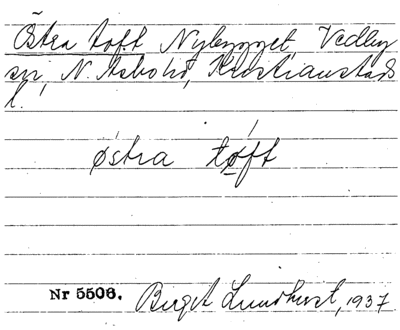 Östra toft Nybygget, Vedby
sn, N. Åsbo hd, Kristianstads
l.
østra tøft
Nr 5506. Birgit Lundkvist, 1937